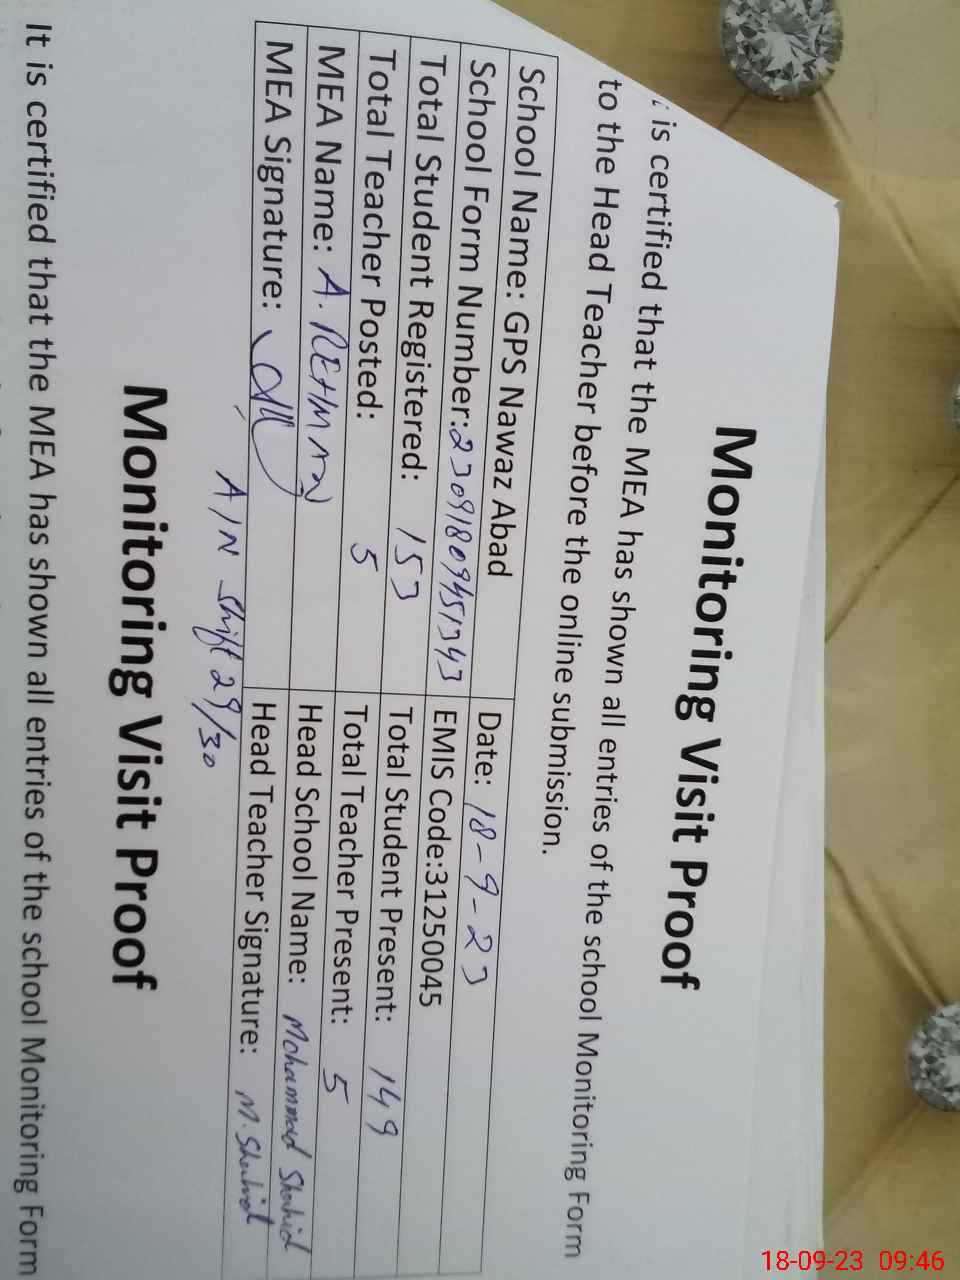 Monitoring Visit Proof
is certified that the MEA has shown all entries of the school Monitoring Form
to the Head Teacher before the online submission.
School Name: GPS Nawaz Abad Date: 18-9-23
School Form Number: EMIS Code:31250045
Total Student Registered: 153 Total Student Present: 149
Total Teacher Posted: 5 Total Teacher Present: 5
MEA Name: A. REHMAN Head School Name: Mohammad Shahid
MEA Signature: Head Teacher Signature: M. Shahid
A/N Shift 29/30
Monitoring Visit Proof
It is certified that the MEA has shown all entries of the school Monitoring Form
18-09-23 09:46